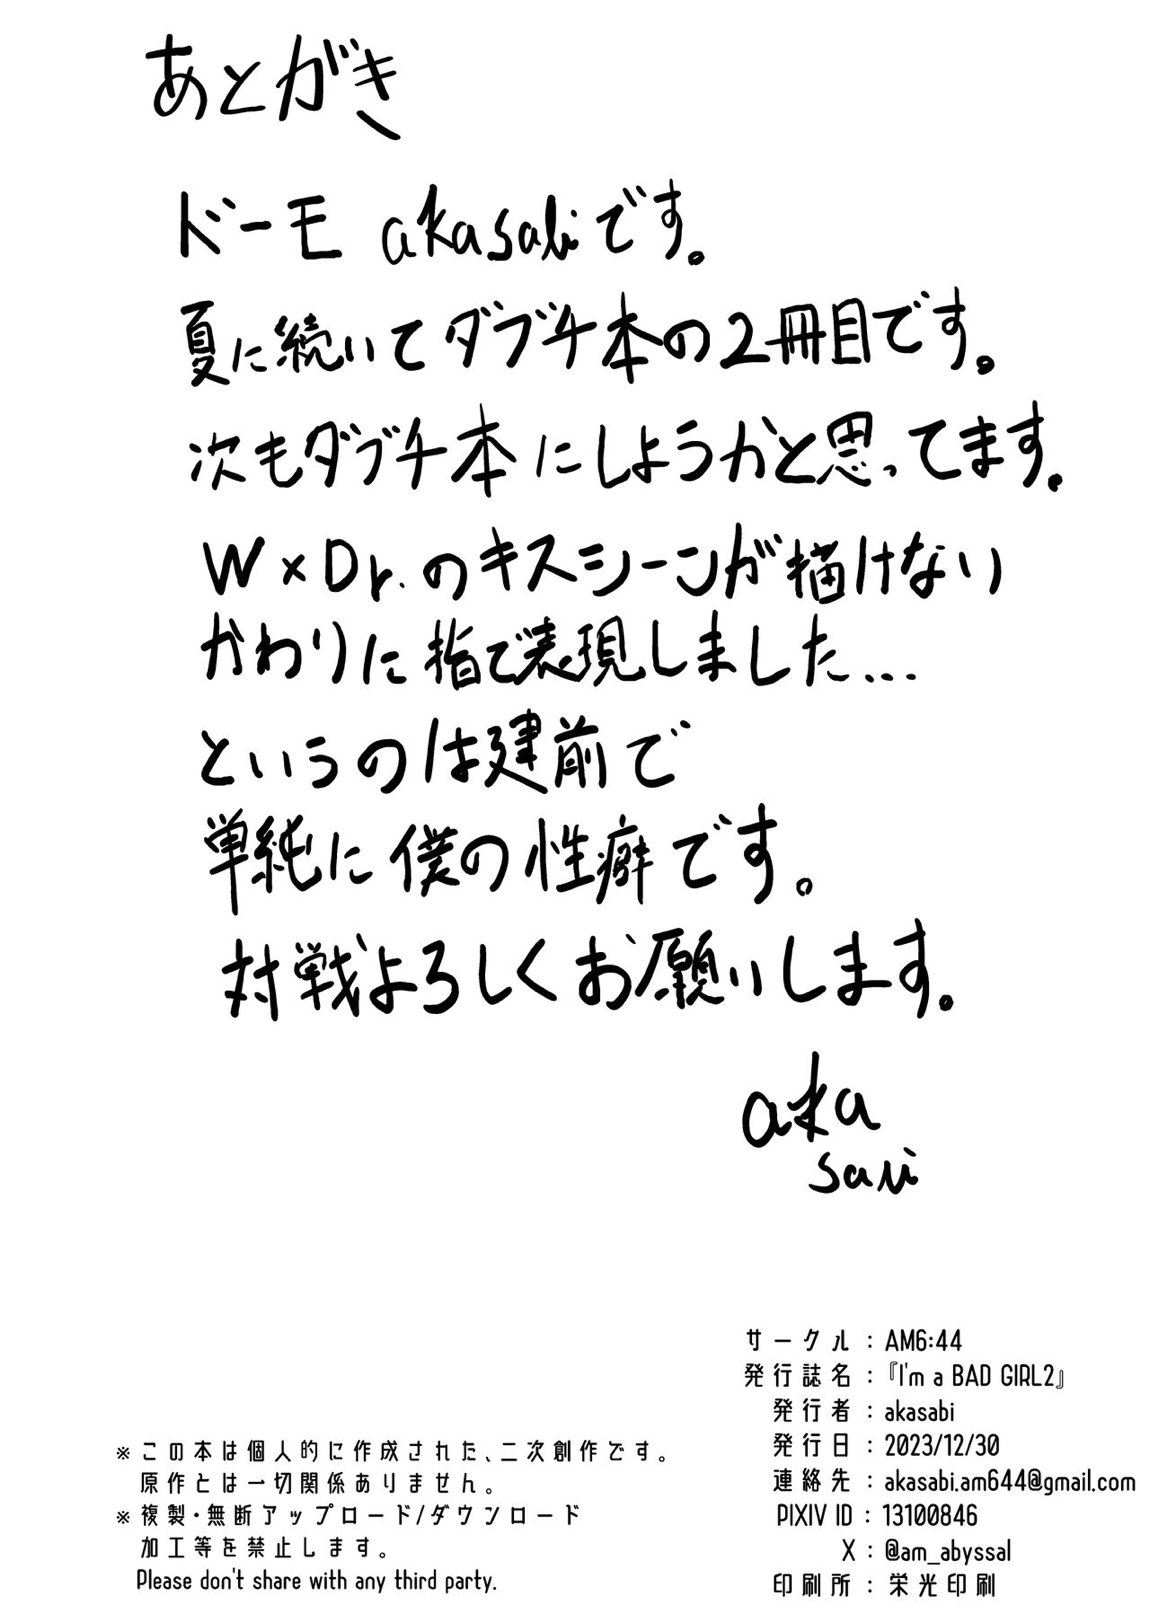 あとがき
ドーモ akasabiです。
夏に続いてダブチ本の2冊目です。
次もダブチ本にしようかと思ってます。
W×Dr.のキスシーンが描けない
かわりに指で表現しました...
というのは建前で
単純に僕の性癖です。
対戦よろしくお願いします。
aka
sabi
サークル：AM6:44
発行誌名：『I'm a BAD GIRL2』
発行者：akasabi
発行日：2023/12/30
連絡先：akasabi.am644@gmail.com
PIXIV ID：13100846
X：@am_abyssal
印刷所：栄光印刷
※この本は個人的に作成された、二次創作です。
原作とは一切関係ありません。
※複製・無断アップロード/ダウンロード
加工等を禁止します。
Please don't share with any third party.